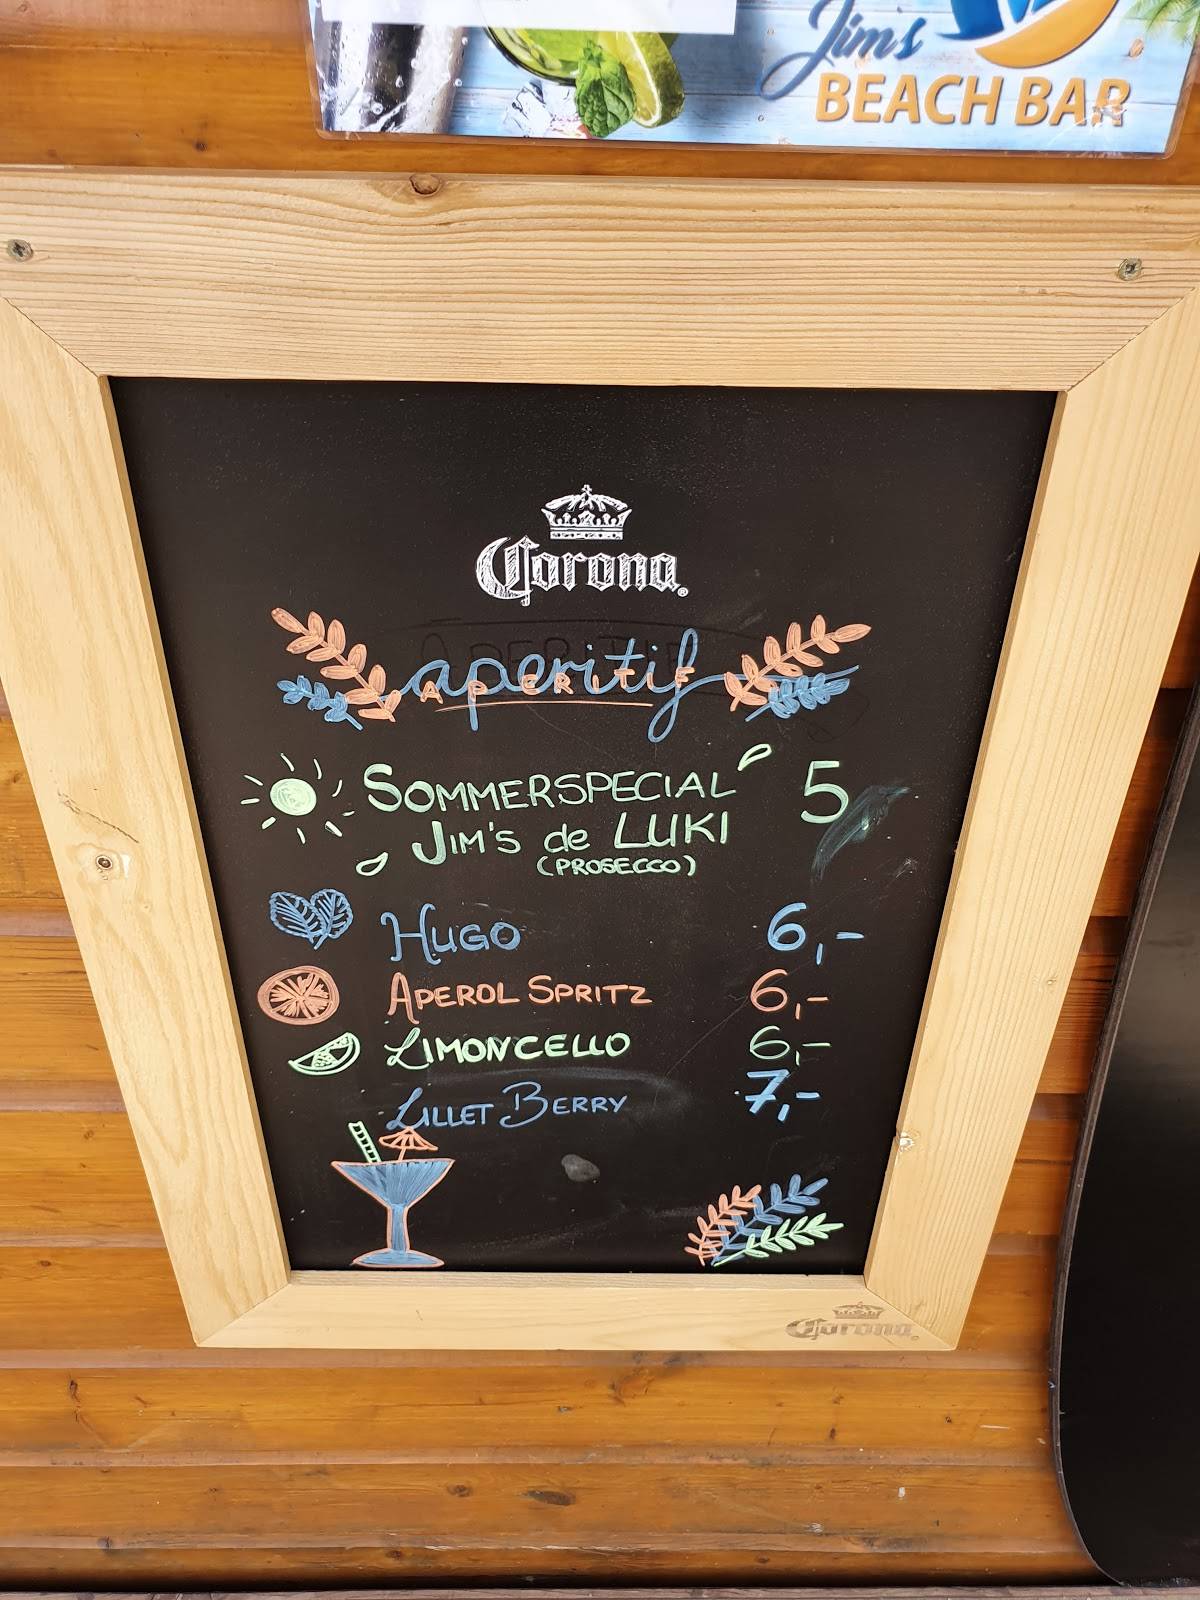 Jim's
BEACH BAR
Corona
aperitif
APERITIF
SOMMERSPECIAL 5,
JIM'S de LUKI
(PROSECCO)
HUGO 6,-
APEROL SPRITZ 6,-
LIMONCELLO 6,-
LILLET BERRY 7,-
Corona